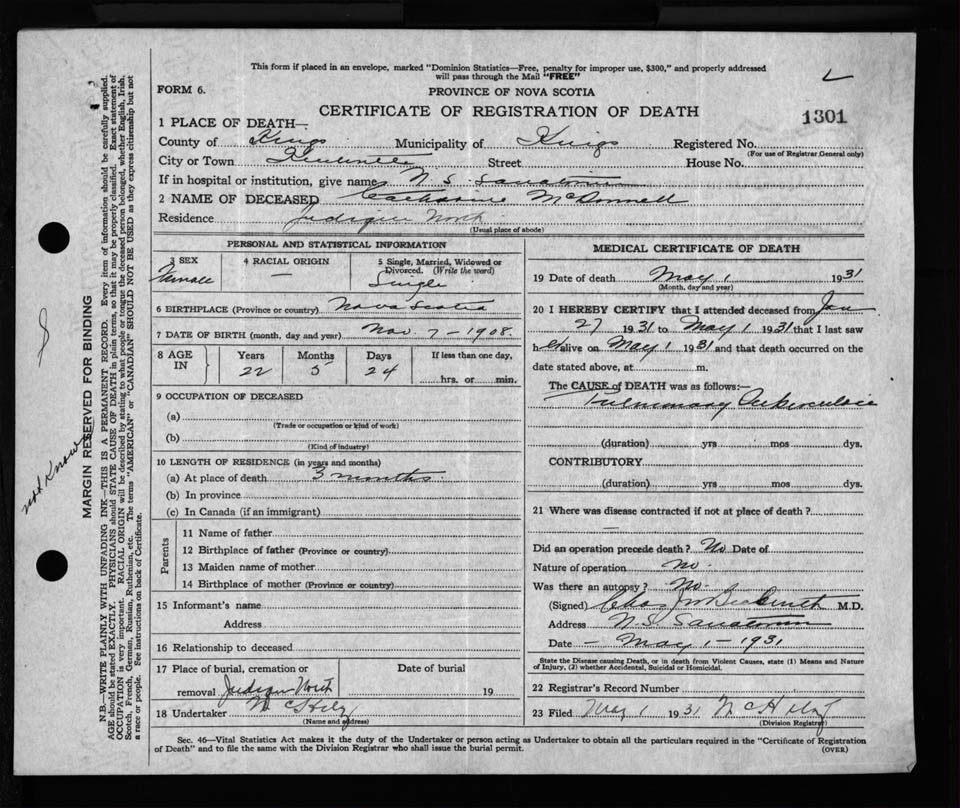 This form if placed in an envelope, marked "Dominion Statistics—Free, penalty for improper use, $300," and properly addressed
will pass through the Mail "FREE"
FORM 6. PROVINCE OF NOVA SCOTIA
CERTIFICATE OF REGISTRATION OF DEATH
1301
1 PLACE OF DEATH—
County of Kings Municipality of Kings Registered No.
(For use of Registrar General only)
City or Town Kentville Street House No.
If in hospital or institution, give name N. S. Sanatorium
2 NAME OF DECEASED Catharine McDonnell
Residence Judique North
(Usual place of abode)
PERSONAL AND STATISTICAL INFORMATION
3 SEX 4 RACIAL ORIGIN 5 Single, Married, Widowed or
Divorced. (Write the word)
Female — Single
6 BIRTHPLACE (Province or country) Nova Scotia
7 DATE OF BIRTH (month, day and year) Nov. 7 - 1908.
8 AGE IN Years Months Days If less than one day,
22 5 24 hrs. or min.
9 OCCUPATION OF DECEASED
(a)
(Trade or occupation or kind of work)
(b)
(Kind of industry)
10 LENGTH OF RESIDENCE (in years and months)
(a) At place of death 3 months.
(b) In province
(c) In Canada (if an immigrant)
Parents
11 Name of father
12 Birthplace of father (Province or country)
13 Maiden name of mother
14 Birthplace of mother (Province or country)
15 Informant's name
Address
16 Relationship to deceased
17 Place of burial, cremation or Date of burial
removal Judique North 19
18 Undertaker
(Name and address)
MEDICAL CERTIFICATE OF DEATH
19 Date of death May 1 1931
(Month, day and year)
20 I HEREBY CERTIFY that I attended deceased from Jan
27 1931 to May 1 1931 that I last saw
her alive on May 1 1931 and that death occurred on the
date stated above, at m.
The CAUSE of DEATH was as follows:—
Pulmonary Tuberculosis
(duration) yrs mos dys.
CONTRIBUTORY
(duration) yrs mos dys.
21 Where was disease contracted if not at place of death?
—
Did an operation precede death? No Date of
Nature of operation no.
Was there an autopsy? No.
(Signed) M.D.
Address N.S. Sanatorium
Date — May 1 - 1931
State the Disease causing Death, or in death from Violent Causes, state (1) Means and Nature
of Injury, (2) whether Accidental, Suicidal or Homicidal.
22 Registrar's Record Number
23 Filed May 1 1931
(Division Registrar)
Sec. 46—Vital Statistics Act makes it the duty of the Undertaker or person acting as Undertaker to obtain all the particulars required in the "Certificate of Registration
of Death" and to file the same with the Division Registrar who shall issue the burial permit. (OVER)
not Know
MARGIN RESERVED FOR BINDING
N.B.—WRITE PLAINLY WITH UNFADING INK—THIS IS A PERMANENT RECORD. Every item of information should be carefully supplied.
AGE should be stated EXACTLY. PHYSICIANS should STATE CAUSE OF DEATH in plain terms, so that it may be properly classified. Exact statement of
OCCUPATION is very important. RACIAL ORIGIN will be described by stating to what people or tongue the deceased person belonged, whether English, Irish,
Scotch, French, German, Russian, Ruthenian, etc. The terms "AMERICAN" or "CANADIAN" SHOULD NOT BE USED as they express citizenship but not
a race or people. See instructions on back of Certificate.